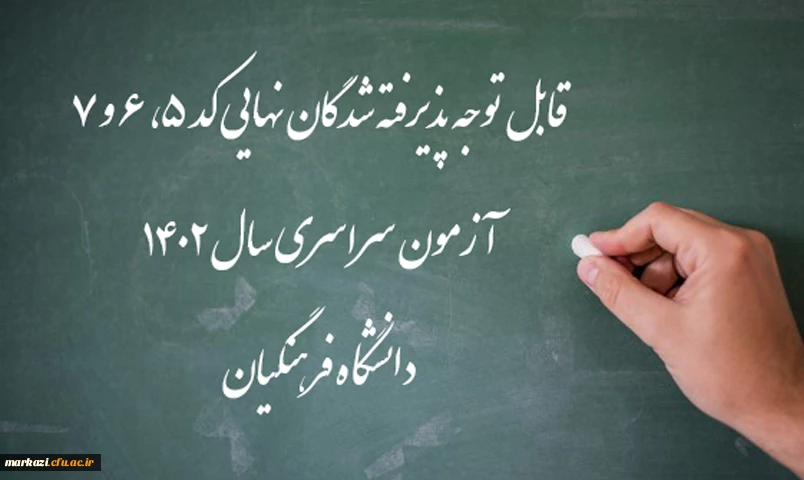 قابل توجه پذیرفته شدگان نهایی کد ۵، ۶ و ۷
آزمون سراسری سال ۱۴۰۲
دانشگاه فرهنگیان
markazi.cfu.ac.ir